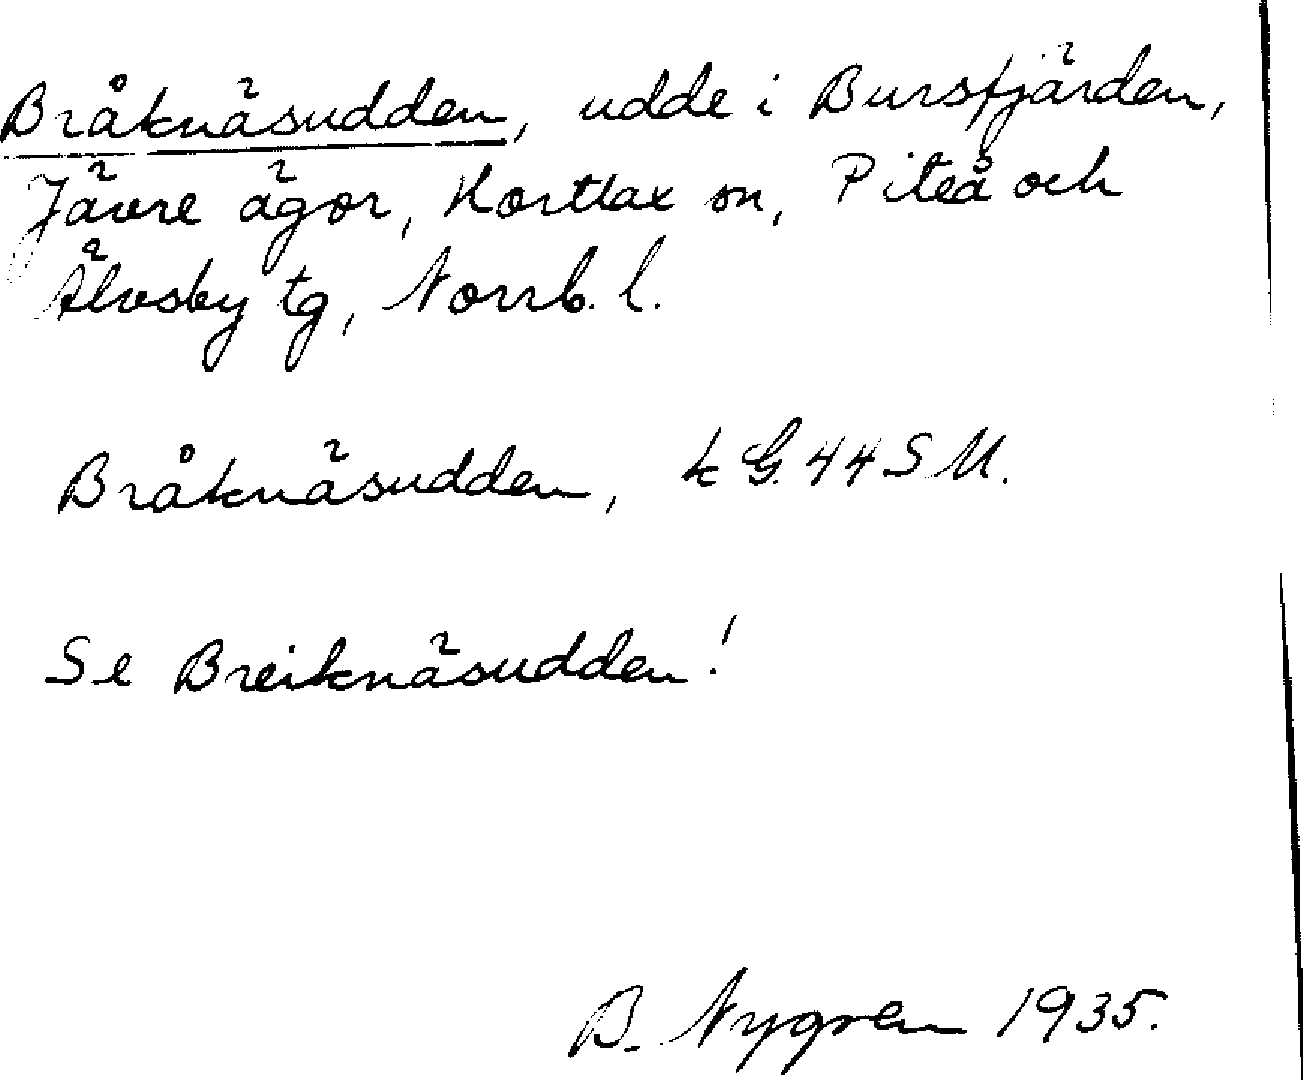 Bråknäsudden, udde i Bursfjärden,
Jävre ägor, Hortlax sn, Piteå och
Älvsby tg, Norrb. l.
Bråknäsudden, k G. 44 S U.
Se Breiknäsudden!
B. Nygren 1935.